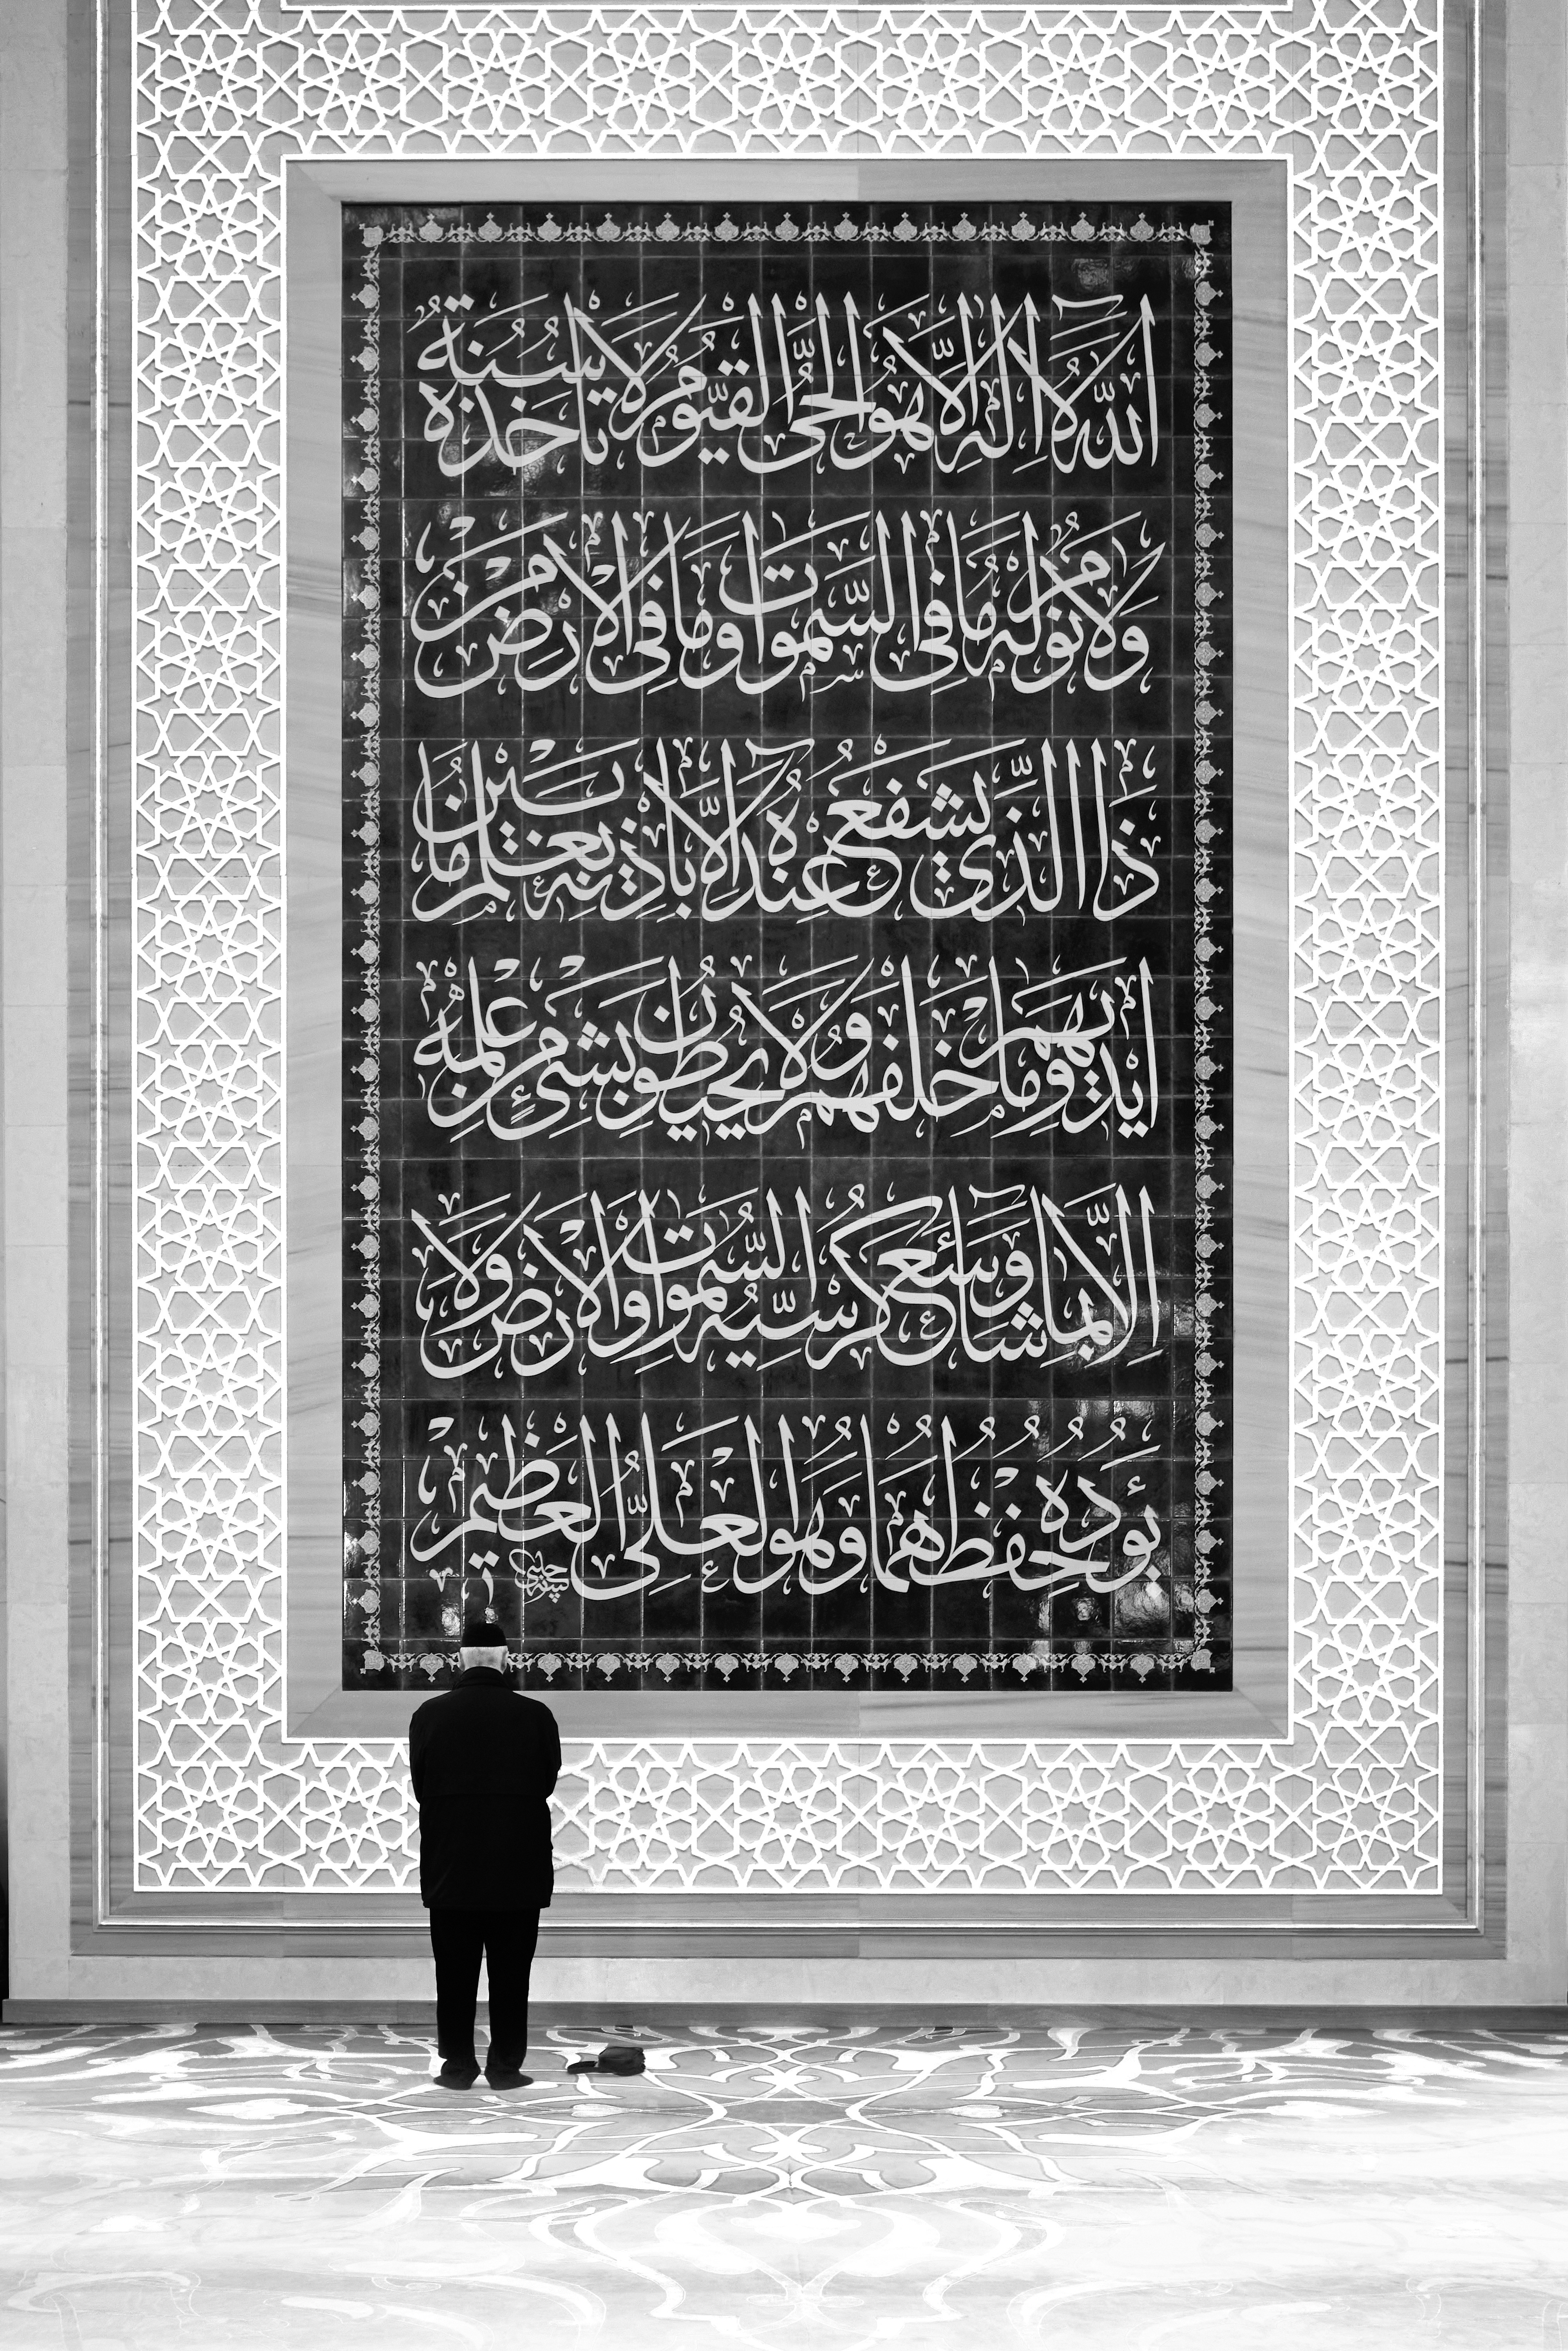 اَللّٰهُ لَا اِلٰهَ اِلَّا هُوَ الْحَيُّ الْقَيُّومُ لَا تَأْخُذُهُ سِنَةٌ
وَلَا نَوْمٌ لَهُ مَا فِي السَّمٰوَاتِ وَمَا فِي الْاَرْضِ مَنْ
ذَا الَّذِي يَشْفَعُ عِنْدَهُ اِلَّا بِاِذْنِهِ يَعْلَمُ مَا بَيْنَ
اَيْدِيهِمْ وَمَا خَلْفَهُمْ وَلَا يُحِيطُونَ بِشَيْءٍ مِنْ عِلْمِهِ
اِلَّا بِمَا شَاءَ وَسِعَ كُرْسِيُّهُ السَّمٰوَاتِ وَالْاَرْضَ وَلَا
يَؤُدُهُ حِفْظُهُمَا وَهُوَ الْعَلِيُّ الْعَظِيمُ